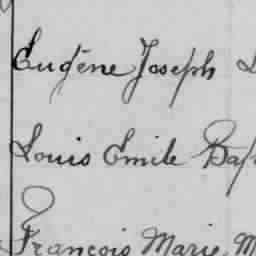 Eugène Joseph
Louis Emile
François Marie